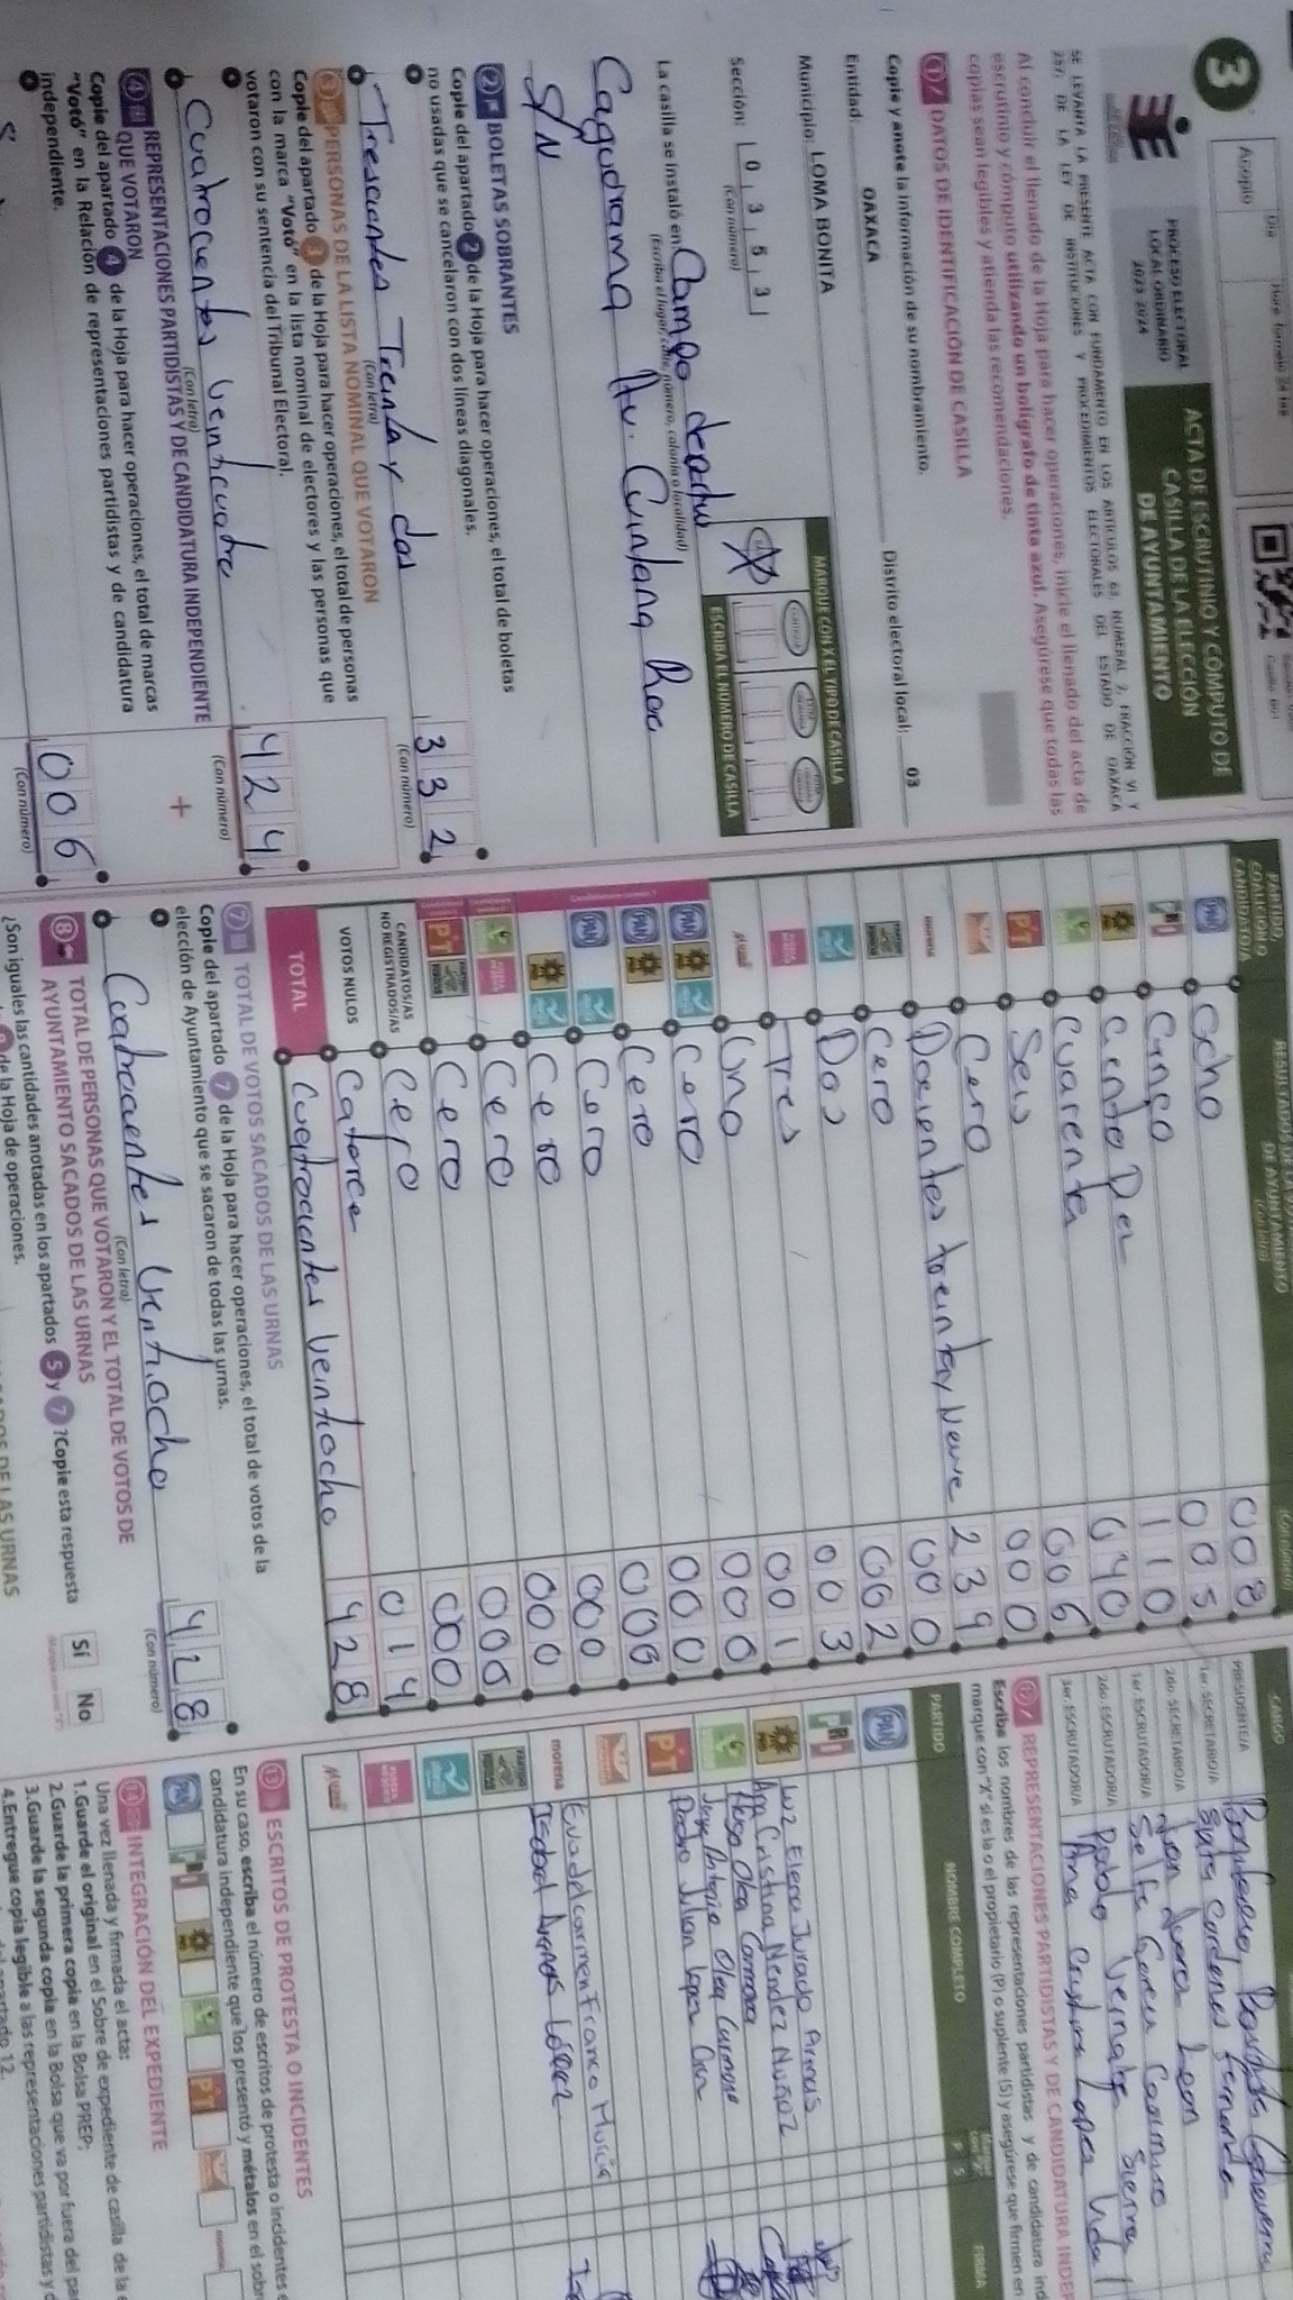 3
Día
Acopio
PROCESO ELECTORAL
LOCAL ORDINARIO
2023-2024
ACTA DE ESCRUTINIO Y CÓMPUTO DE
CASILLA DE LA ELECCIÓN
DE AYUNTAMIENTO
SE LEVANTA LA PRESENTE ACTA CON FUNDAMENTO EN LOS ARTÍCULOS 63, NUMERAL 2, FRACCIÓN VI Y
257, DE LA LEY DE INSTITUCIONES Y PROCEDIMIENTOS ELECTORALES DEL ESTADO DE OAXACA
Al concluir el llenado de la Hoja para hacer operaciones, inicie el llenado del acta de
escrutinio y cómputo utilizando un bolígrafo de tinta azul. Asegúrese que todas las
copias sean legibles y atienda las recomendaciones.
1 DATOS DE IDENTIFICACIÓN DE CASILLA
Copie y anote la información de su nombramiento.
Entidad: OAXACA Distrito electoral local: 03
Municipio: LOMA BONITA
MARQUE CON X EL TIPO DE CASILLA
Sección: 0 3 5 3
(Con número)
ESCRIBA EL NÚMERO DE CASILLA
La casilla se instaló en: Campo
(Escriba el lugar, calle, número, colonia o localidad)
Av. Quintana Roo
S/N
2 BOLETAS SOBRANTES
Copie del apartado 2 de la Hoja para hacer operaciones, el total de boletas
no usadas que se cancelaron con dos líneas diagonales.
Trescientos Treinta y dos 332
(Con letra) (Con número)
3 PERSONAS DE LA LISTA NOMINAL QUE VOTARON
Copie del apartado 3 de la Hoja para hacer operaciones, el total de personas
con la marca "Votó" en la lista nominal de electores y las personas que
votaron con su sentencia del Tribunal Electoral.
Cuatrocientos Veinticuatro 424
(Con letra) (Con número)
4 REPRESENTACIONES PARTIDISTAS Y DE CANDIDATURA INDEPENDIENTE
QUE VOTARON
+
Copie del apartado 4 de la Hoja para hacer operaciones, el total de marcas
"Votó" en la Relación de representaciones partidistas y de candidatura
independiente.
006
(Con número)
PARTIDO,
COALICIÓN O
CANDIDATO/A
RESULTADOS DE LA
DE AYUNTAMIENTO
(Con letra)
(Con número)
PAN Ocho 008
PRI Cinco 005
PRD Ciento Diez 110
Cuarenta 040
PT Seis 006
Cero 000
morena Doscientos treinta y Nueve 239
Cero 000
Dos 002
Tres 003
Uno 001
PAN PRD Cero 000
PAN PRD Cero 000
PAN Cero 000
PRD Cero 000
Cero 000
PT Cero 000
CANDIDATOS/AS
NO REGISTRADOS/AS Cero 000
VOTOS NULOS Catorce 014
TOTAL Cuatrocientos Veintiocho 428
7 TOTAL DE VOTOS SACADOS DE LAS URNAS
Copie del apartado 7 de la Hoja para hacer operaciones, el total de votos de la
elección de Ayuntamiento que se sacaron de todas las urnas.
Veintiocho 428
(Con letra) (Con número)
8 TOTAL DE PERSONAS QUE VOTARON Y EL TOTAL DE VOTOS DE
AYUNTAMIENTO SACADOS DE LAS URNAS
¿Son iguales las cantidades anotadas en los apartados 5 y 7 ?Copie esta respuesta
de la Hoja de operaciones.
Sí No
CARGO
PRESIDENTE/A
1er. SECRETARIO/A
2do. SECRETARIO/A
1er. ESCRUTADOR/A
2do. ESCRUTADOR/A Pablo Sierra
3er. ESCRUTADOR/A Ana Cristina Lopez Vidal
12 REPRESENTACIONES PARTIDISTAS Y DE CANDIDATURA INDEP
Escriba los nombres de las representaciones partidistas y de candidatura ind
marque con "X" si es la o el propietario (P) o suplente (S) y asegúrese que firmen en
PARTIDO NOMBRE COMPLETO P S FIRMA
PAN
PRI Luz Elena Jurado Armas
PRD Ana Cristina Mendez Nuñoz
Hugo Olea Carmona
Jorge Antonio Olea Carmona
PT Pedro Julian Lopez Cruz
morena Eva del carmen Franco Murcia
Isabel López
13 ESCRITOS DE PROTESTA O INCIDENTES
En su caso, escriba el número de escritos de protesta o incidentes
candidatura independiente que los presentó y métalos en el sobre
PAN PRI PRD PT
14 INTEGRACIÓN DEL EXPEDIENTE
Una vez llenada y firmada el acta:
1.Guarde el original en el Sobre de expediente de casilla de la
2.Guarde la primera copia en la Bolsa PREP;
3.Guarde la segunda copia en la Bolsa que va por fuera del pa
4.Entregue copia legible a las representaciones partidistas y